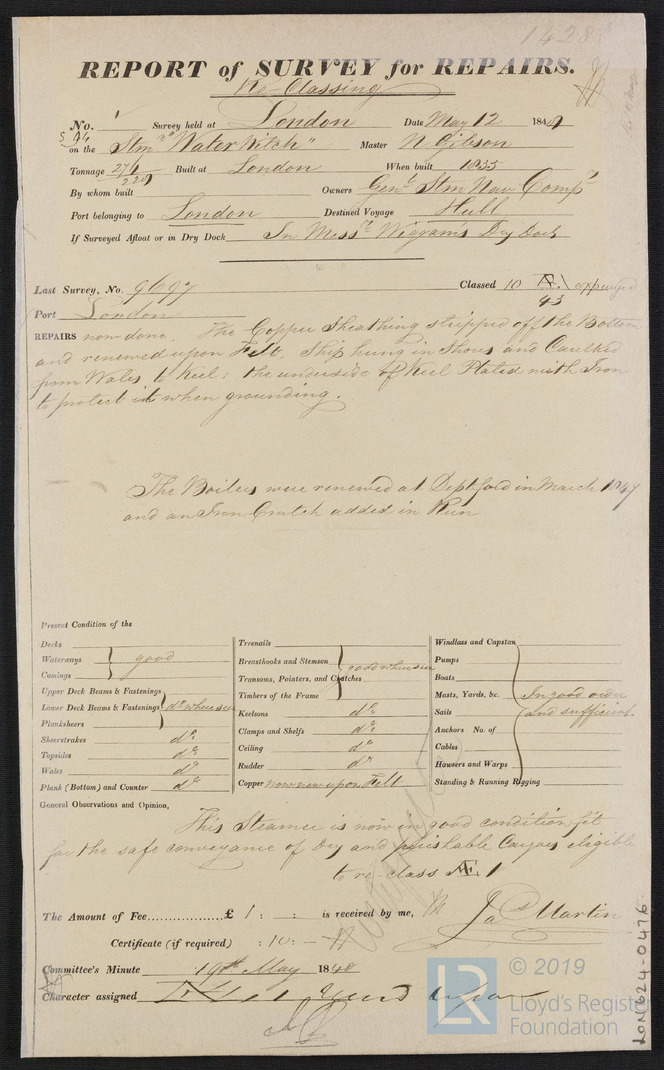 1428
REPORT of SURVEY for REPAIRS.
Re Classing
No. 1 Survey held at London Date May 12 184
on the Stmr "Water Witch" Master N Gibson
Tonnage Built at London When built 1835
By whom built Owners Genl Stm Nav Compy
Port belonging to London Destined Voyage Hull
If Surveyed Afloat or in Dry Dock In Messrs Wigrams Dry Dock
Last Survey, No. 9697 Classed 10 expunged
43
Port London
REPAIRS now done. The Copper Sheathing stripped off the Bottom
and renewed upon Felt, Ship hung in Shores and Caulked
from Wales to Keel: the underside of Keel Plated with Iron
to protect it when grounding.
The Boilers were renewed at Deptford in March 1847
and an Iron Crutch added in Run
Present Condition of the
Decks
Waterways good
Comings
Upper Deck Beams & Fastenings
Lower Deck Beams & Fastenings do where seen
Planksheers
Sheerstrakes do
Topsides do
Wales do
Plank (Bottom) and Counter do
Treenails
Breasthooks and Stemson good where seen
Transoms, Pointers, and Crutches
Timbers of the Frame
Keelsons do
Clamps and Shelfs do
Ceiling do
Rudder do
Copper now new upon Felt
Windlass and Capstan
Pumps
Boats
Masts, Yards, &c. In good order
Sails and sufficient.
Anchors No. of
Cables
Hawsers and Warps
Standing & Running Rigging
General Observations and Opinion,
This Steamer is now in good condition fit
for the safe conveyance of Dry and perishable Cargoes eligible
to re-class 1
The Amount of Fee £ 1 : – : is received by me,
Jas Martin
Certificate (if required) : 10 : –
Committee's Minute 19th May 1848
Character assigned
© 2019
LR
Lloyd's Register
Foundation
LON624-0476